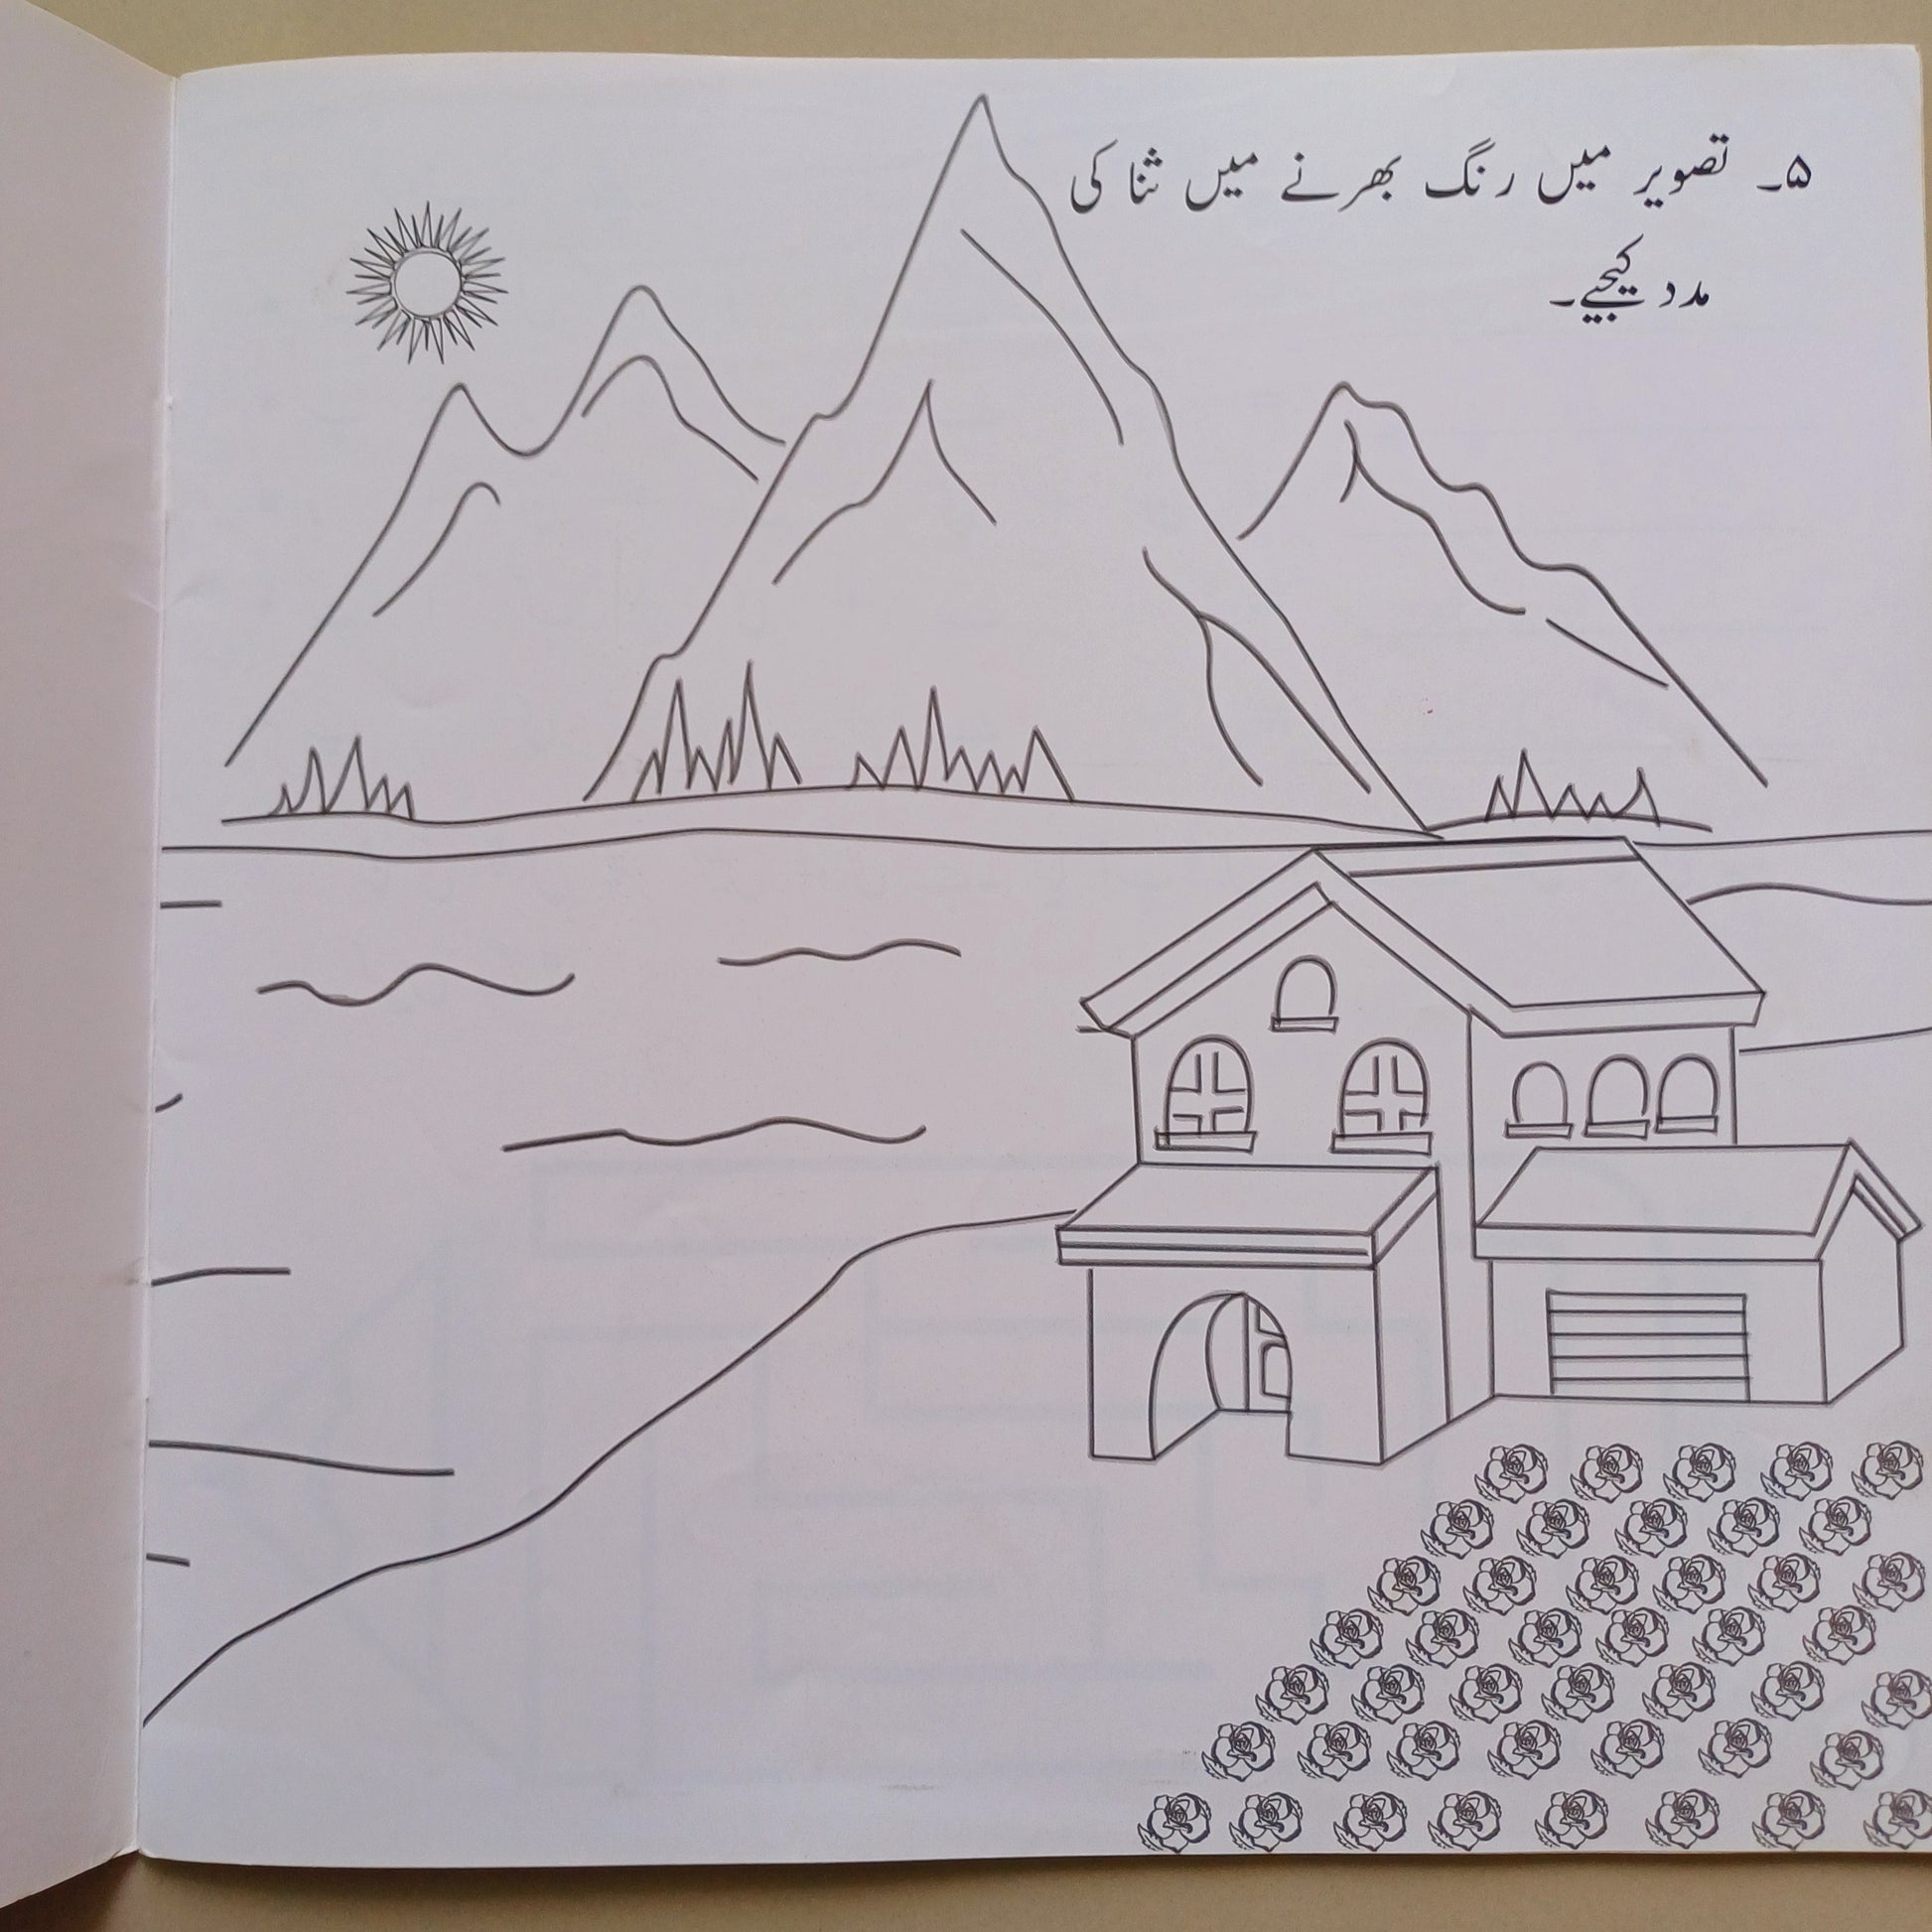 ۵۔ تصویر میں رنگ بھرنے میں ثنا کی
مدد کیجیے۔